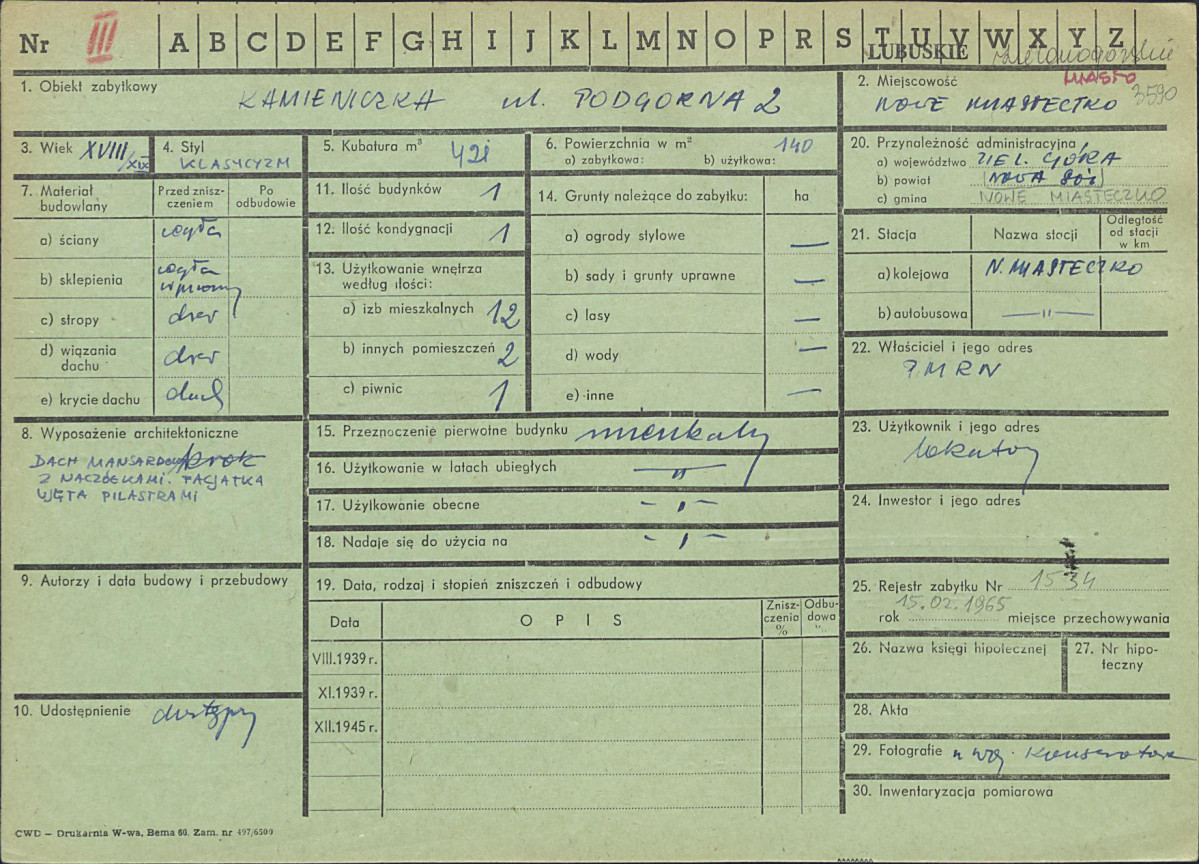 Nr III A B C D E F G H I J K L M N O P R S T U V W X Y Z
LUBUSKIE zielonogórskie
1. Obiekt zabytkowy
KAMIENICZKA ul. PODGÓRNA 2
2. Miejscowość MIASTO
NOWE MIASTECZKO 3590
3. Wiek XVIII/XIX
4. Styl
KLASYCYZM
5. Kubatura m³ 421
6. Powierzchnia w m² 140
a) zabytkowa: b) użytkowa:
7. Materiał budowlany
Przed znisz-
czeniem
Po
odbudowie
a) ściany cegła
b) sklepienia cegła
c) stropy drew
d) wiązania
dachu drew
e) krycie dachu dach
8. Wyposażenie architektoniczne
DACH MANSARDOWY
Z NACZÓŁKAMI. FACJATKA
UJĘTA PILASTRAMI
9. Autorzy i data budowy i przebudowy
10. Udostępnienie dostępny
11. Ilość budynków 1
12. Ilość kondygnacji 1
13. Użytkowanie wnętrza
według ilości:
a) izb mieszkalnych 12
b) innych pomieszczeń 2
c) piwnic 1
14. Grunty należące do zabytku: ha
a) ogrody stylowe —
b) sady i grunty uprawne —
c) lasy —
d) wody —
e) inne —
15. Przeznaczenie pierwotne budynku mieszkalny
16. Użytkowanie w latach ubiegłych —"—
17. Użytkowanie obecne —"—
18. Nadaje się do użycia na —"—
19. Data, rodzaj i stopień zniszczeń i odbudowy
Data O P I S
Znisz-
czenia
%
Odbu-
dowa
%
VIII.1939 r.
XI.1939 r.
XII.1945 r.
20. Przynależność administracyjna
a) województwo ZIEL. GÓRA
b) powiat (NOWA SÓL)
c) gmina NOWE MIASTECZKO
21. Stacja Nazwa stacji
Odległość
od stacji
w km
a) kolejowa N. MIASTECZKO
b) autobusowa —"—
22. Właściciel i jego adres
PMRN
23. Użytkownik i jego adres
lokatorzy
24. Inwestor i jego adres
25. Rejestr zabytku Nr 1534
rok 15.02.1965 miejsce przechowywania
26. Nazwa księgi hipotecznej
27. Nr hipo-
teczny
28. Akta
29. Fotografie u woj. Konserwatora
30. Inwentaryzacja pomiarowa
CWD — Drukarnia W-wa, Bema 60. Zam. nr 497/6500